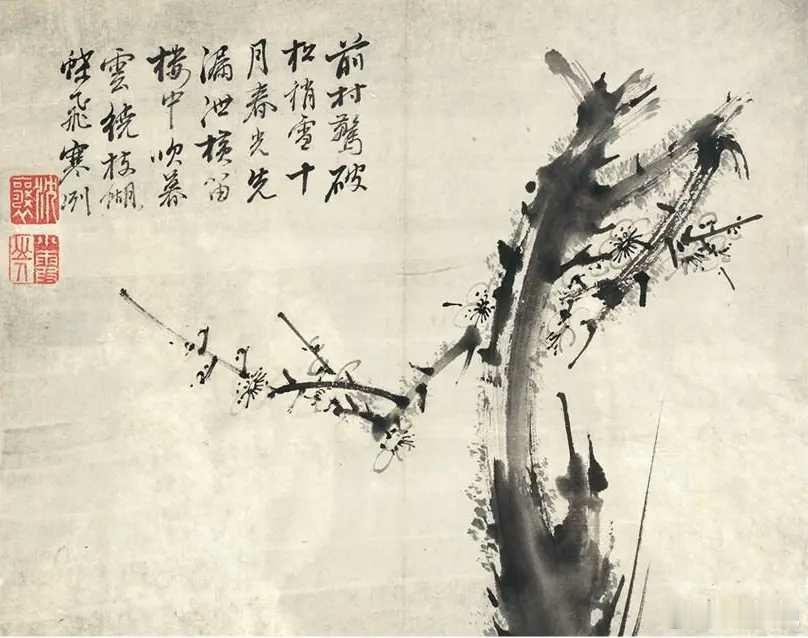 前村驚破
松梢雪十
月春光先
漏泄橫笛
樓中吹暮
雲繞枝蝴
蝶飛寒冽
沈襄